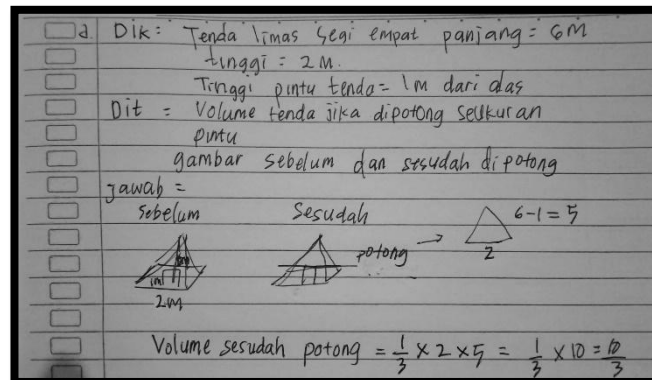 d. Dik = Tenda limas segi empat panjang = 6M
tinggi = 2M.
Tinggi pintu tenda = 1m dari alas
Dit = Volume tenda jika dipotong seukuran
pintu
gambar sebelum dan sesudah dipotong
Jawab =
Sebelum Sesudah
potong → 6-1=5
2
1m
2m
Volume sesudah potong = 1/3 × 2 × 5 = 1/3 × 10 = 10/3